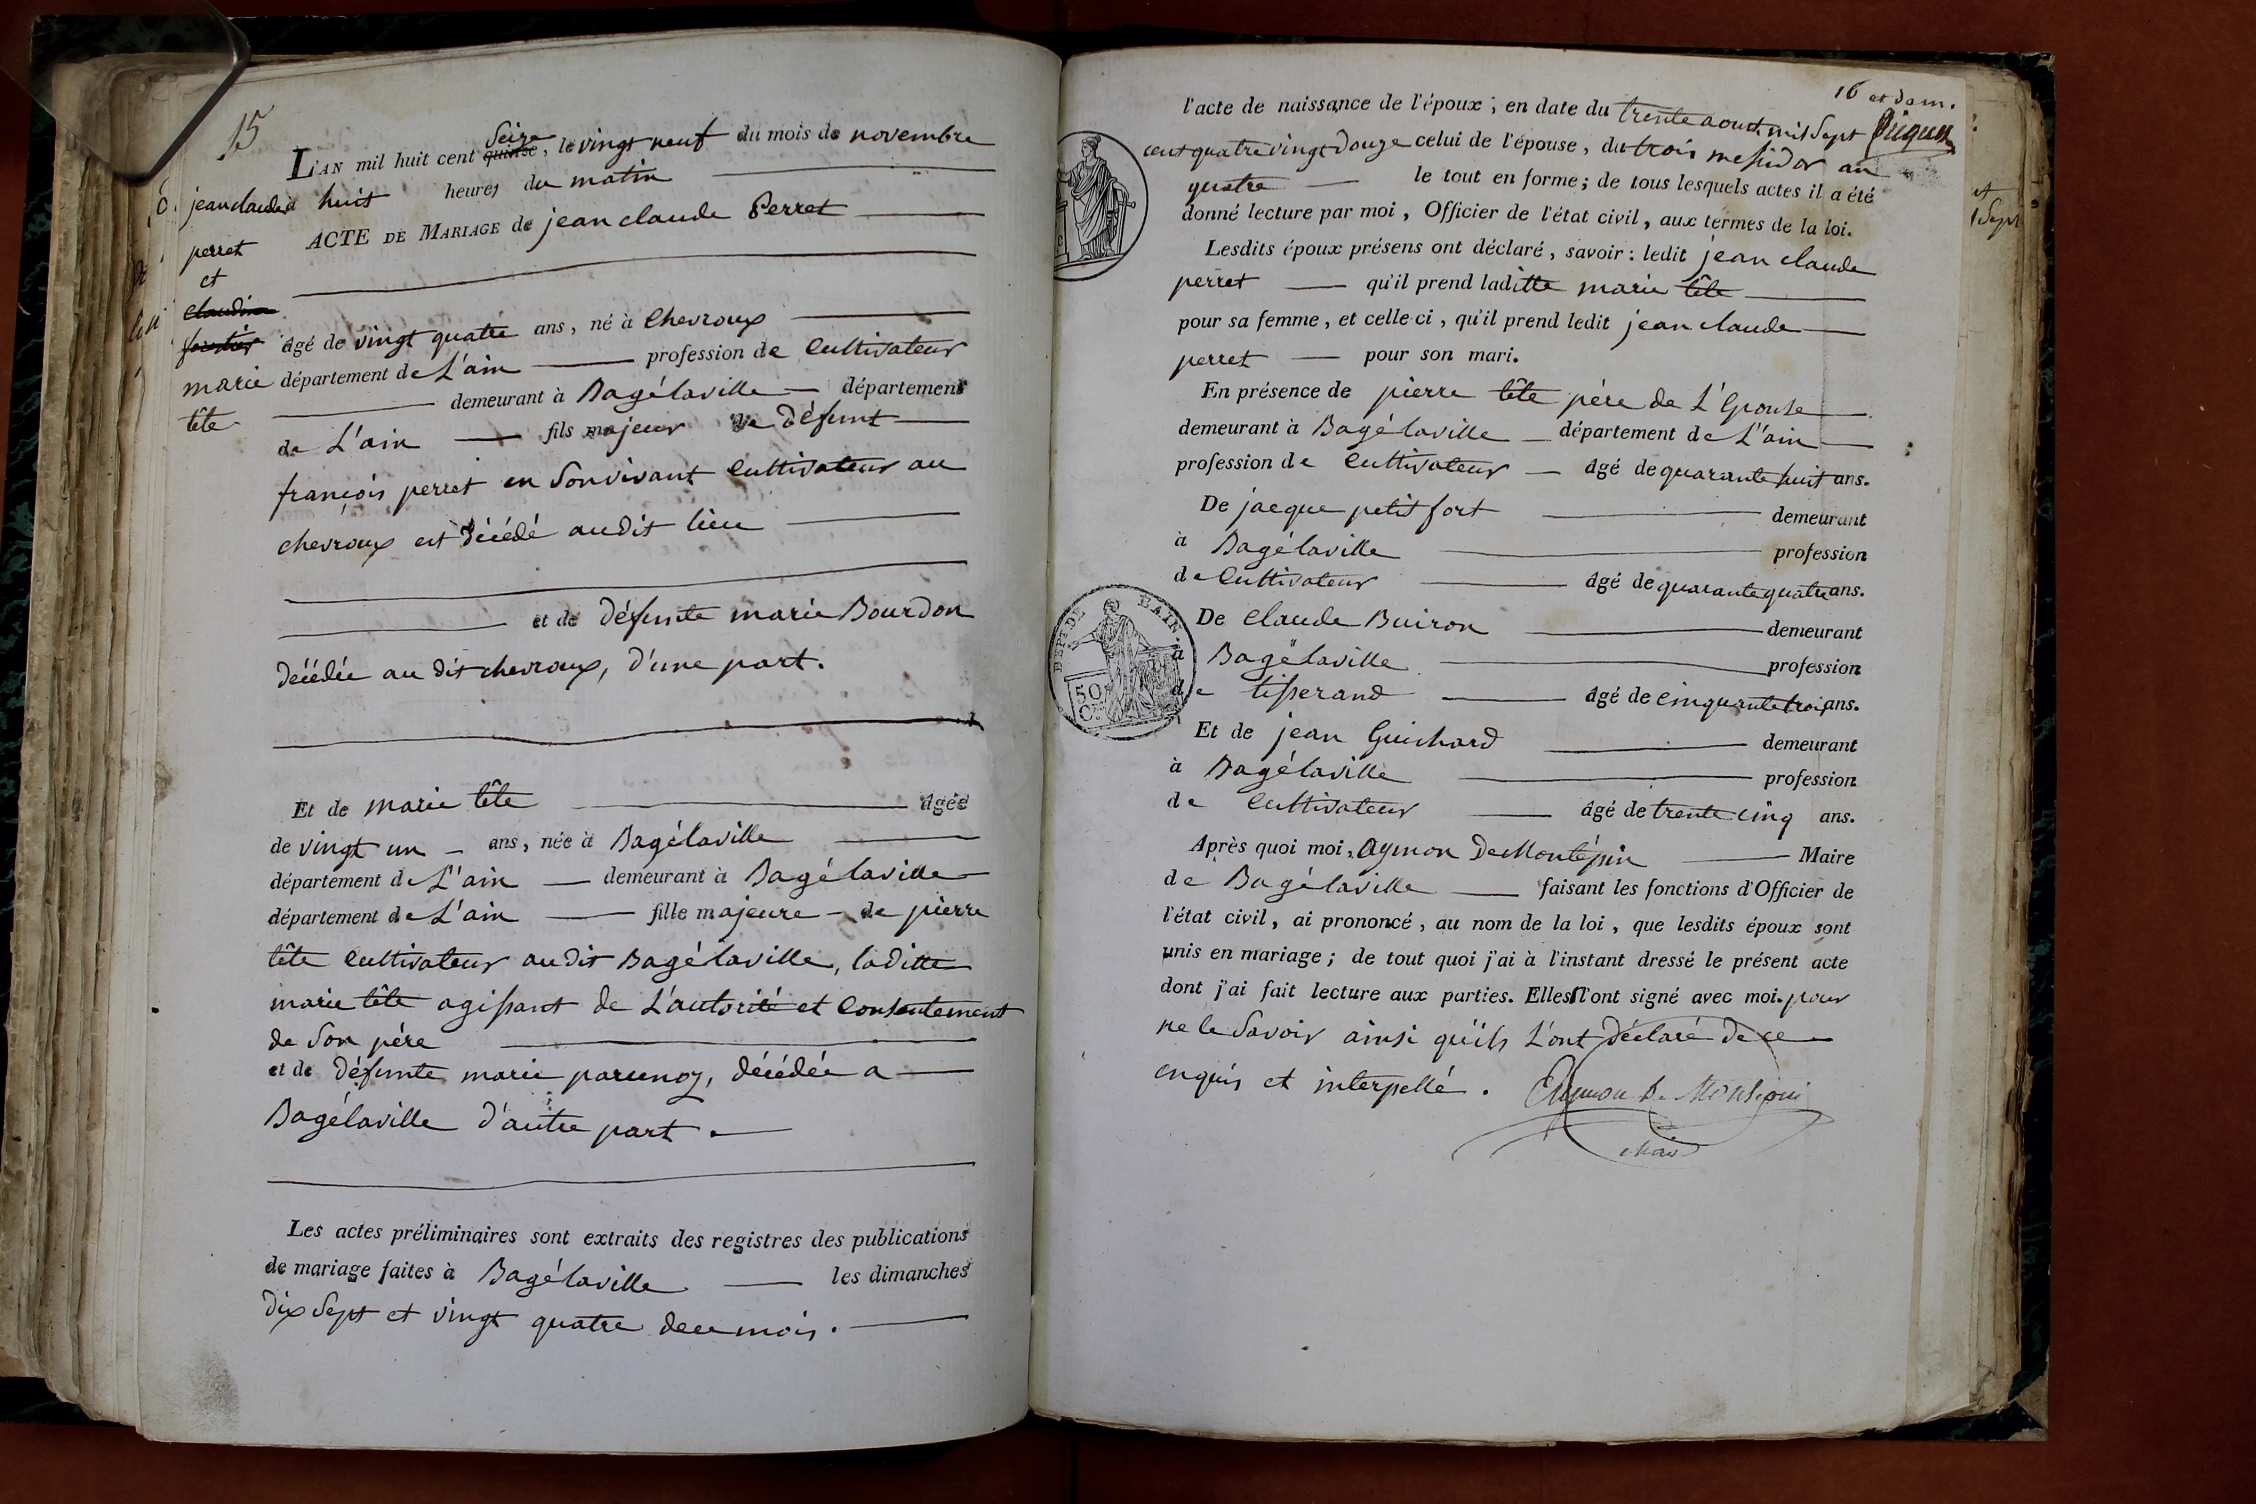 15
L'AN mil huit cent quinse Seize, le vingt neuf du mois de novembre
à huit heures du matin
ACTE DE MARIAGE de jean claude Perret
jean claude
perret
et
marie
tête
âgé de vingt quatre ans, né à Chevroux
département de L'ain profession de Cultivateur
demeurant à Bagélaville département
de L'ain fils majeur de défunt
françois perret en Son vivant Cultivateur au
chevroux est décédé audit lieu
et de défunte marie Bourdon
décédée au dit chevroux, d'une part.
Et de marie tête âgée
de vingt un ans, née à Bagélaville
département de L'ain demeurant à Bagélaville
département de L'ain fille majeure de pierre
tête Cultivateur audit Bagélaville, laditte
marie tête agissant de L'autorité et Consentement
de Son pére
et de défunte marie, décédée a
Bagélaville d'autre part.
Les actes préliminaires sont extraits des registres des publications
de mariage faites à Bagélaville les dimanches
dix Sept et vingt quatre de ce mois.
16
l'acte de naissance de l'époux, en date du trente aout mil Sept
cent quatre vingt douze celui de l'épouse, du trois messidor an
quatre le tout en forme; de tous lesquels actes il a été
donné lecture par moi, Officier de l'état civil, aux termes de la loi.
Lesdits époux présens ont déclaré, savoir: ledit jean claude
perret qu'il prend laditte marie tête
pour sa femme, et celle-ci, qu'il prend ledit jean claude
perret pour son mari.
En présence de pierre tête pére de L'Epouse
demeurant à Bagélaville département de L'ain
profession de Cultivateur âgé de quarante huit ans.
De jacque petit fort demeurant
à Bagélaville profession
de Cultivateur âgé de quarante quatre ans.
De Claude Buiron demeurant
à Bagélaville profession
de tisserand âgé de Cinquante trois ans.
Et de jean Guichard demeurant
à Bagélaville profession
de Cultivateur âgé de trente cinq ans.
Après quoi moi, Aymon De Montépin Maire
de Bagélaville faisant les fonctions d'Officier de
l'état civil, ai prononcé, au nom de la loi, que lesdits époux sont
unis en mariage; de tout quoi j'ai à l'instant dressé le présent acte
dont j'ai fait lecture aux parties. Elles n'ont signé avec moi. pour
ne le Savoir ainsi qu'ils L'ont déclaré de ce
enquis et interpellé. Aymon De Montépin
Maire
DEPT. DE L'AIN
50
C.